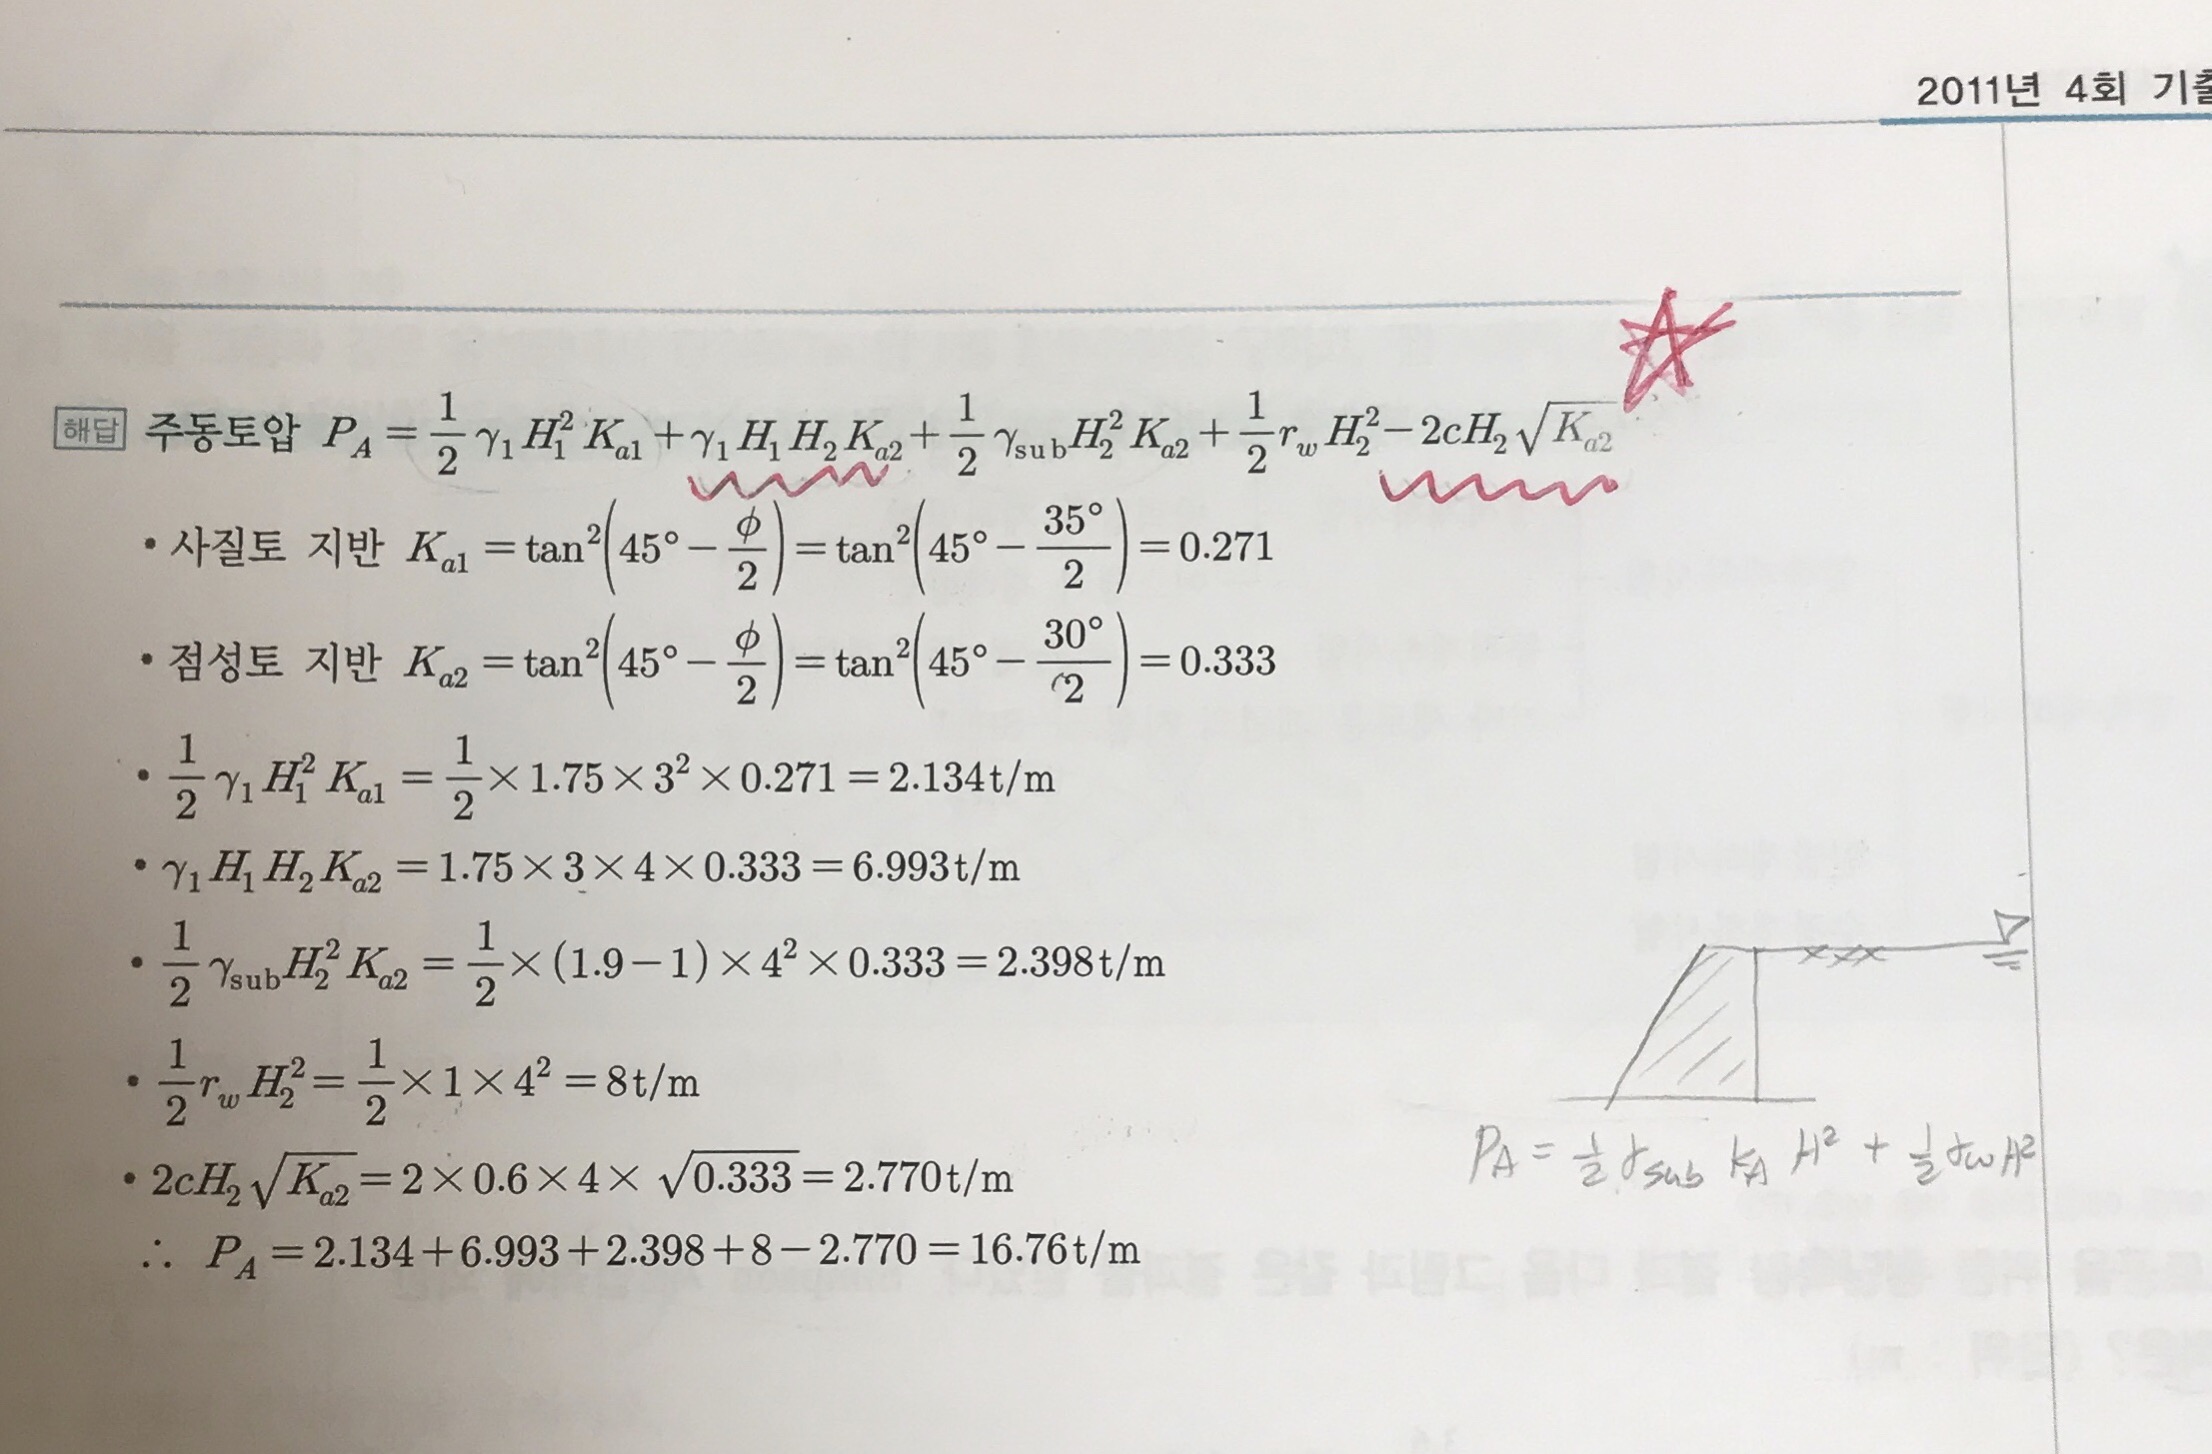 2011년 4회 기출
해답 주동토압 P_A = 1/2 γ₁H₁²K_a1 + γ₁H₁H₂K_a2 + 1/2 γ_sub H₂²K_a2 + 1/2 r_w H₂² − 2cH₂√K_a2
• 사질토 지반 K_a1 = tan²(45° − ϕ/2) = tan²(45° − 35°/2) = 0.271
• 점성토 지반 K_a2 = tan²(45° − ϕ/2) = tan²(45° − 30°/2) = 0.333
• 1/2 γ₁H₁²K_a1 = 1/2 × 1.75 × 3² × 0.271 = 2.134t/m
• γ₁H₁H₂K_a2 = 1.75 × 3 × 4 × 0.333 = 6.993t/m
• 1/2 γ_sub H₂²K_a2 = 1/2 × (1.9 − 1) × 4² × 0.333 = 2.398t/m
• 1/2 r_w H₂² = 1/2 × 1 × 4² = 8t/m
• 2cH₂√K_a2 = 2 × 0.6 × 4 × √0.333 = 2.770t/m
∴ P_A = 2.134 + 6.993 + 2.398 + 8 − 2.770 = 16.76t/m
P_A = 1/2 γ_sub K_A H² + 1/2 γ_w H²